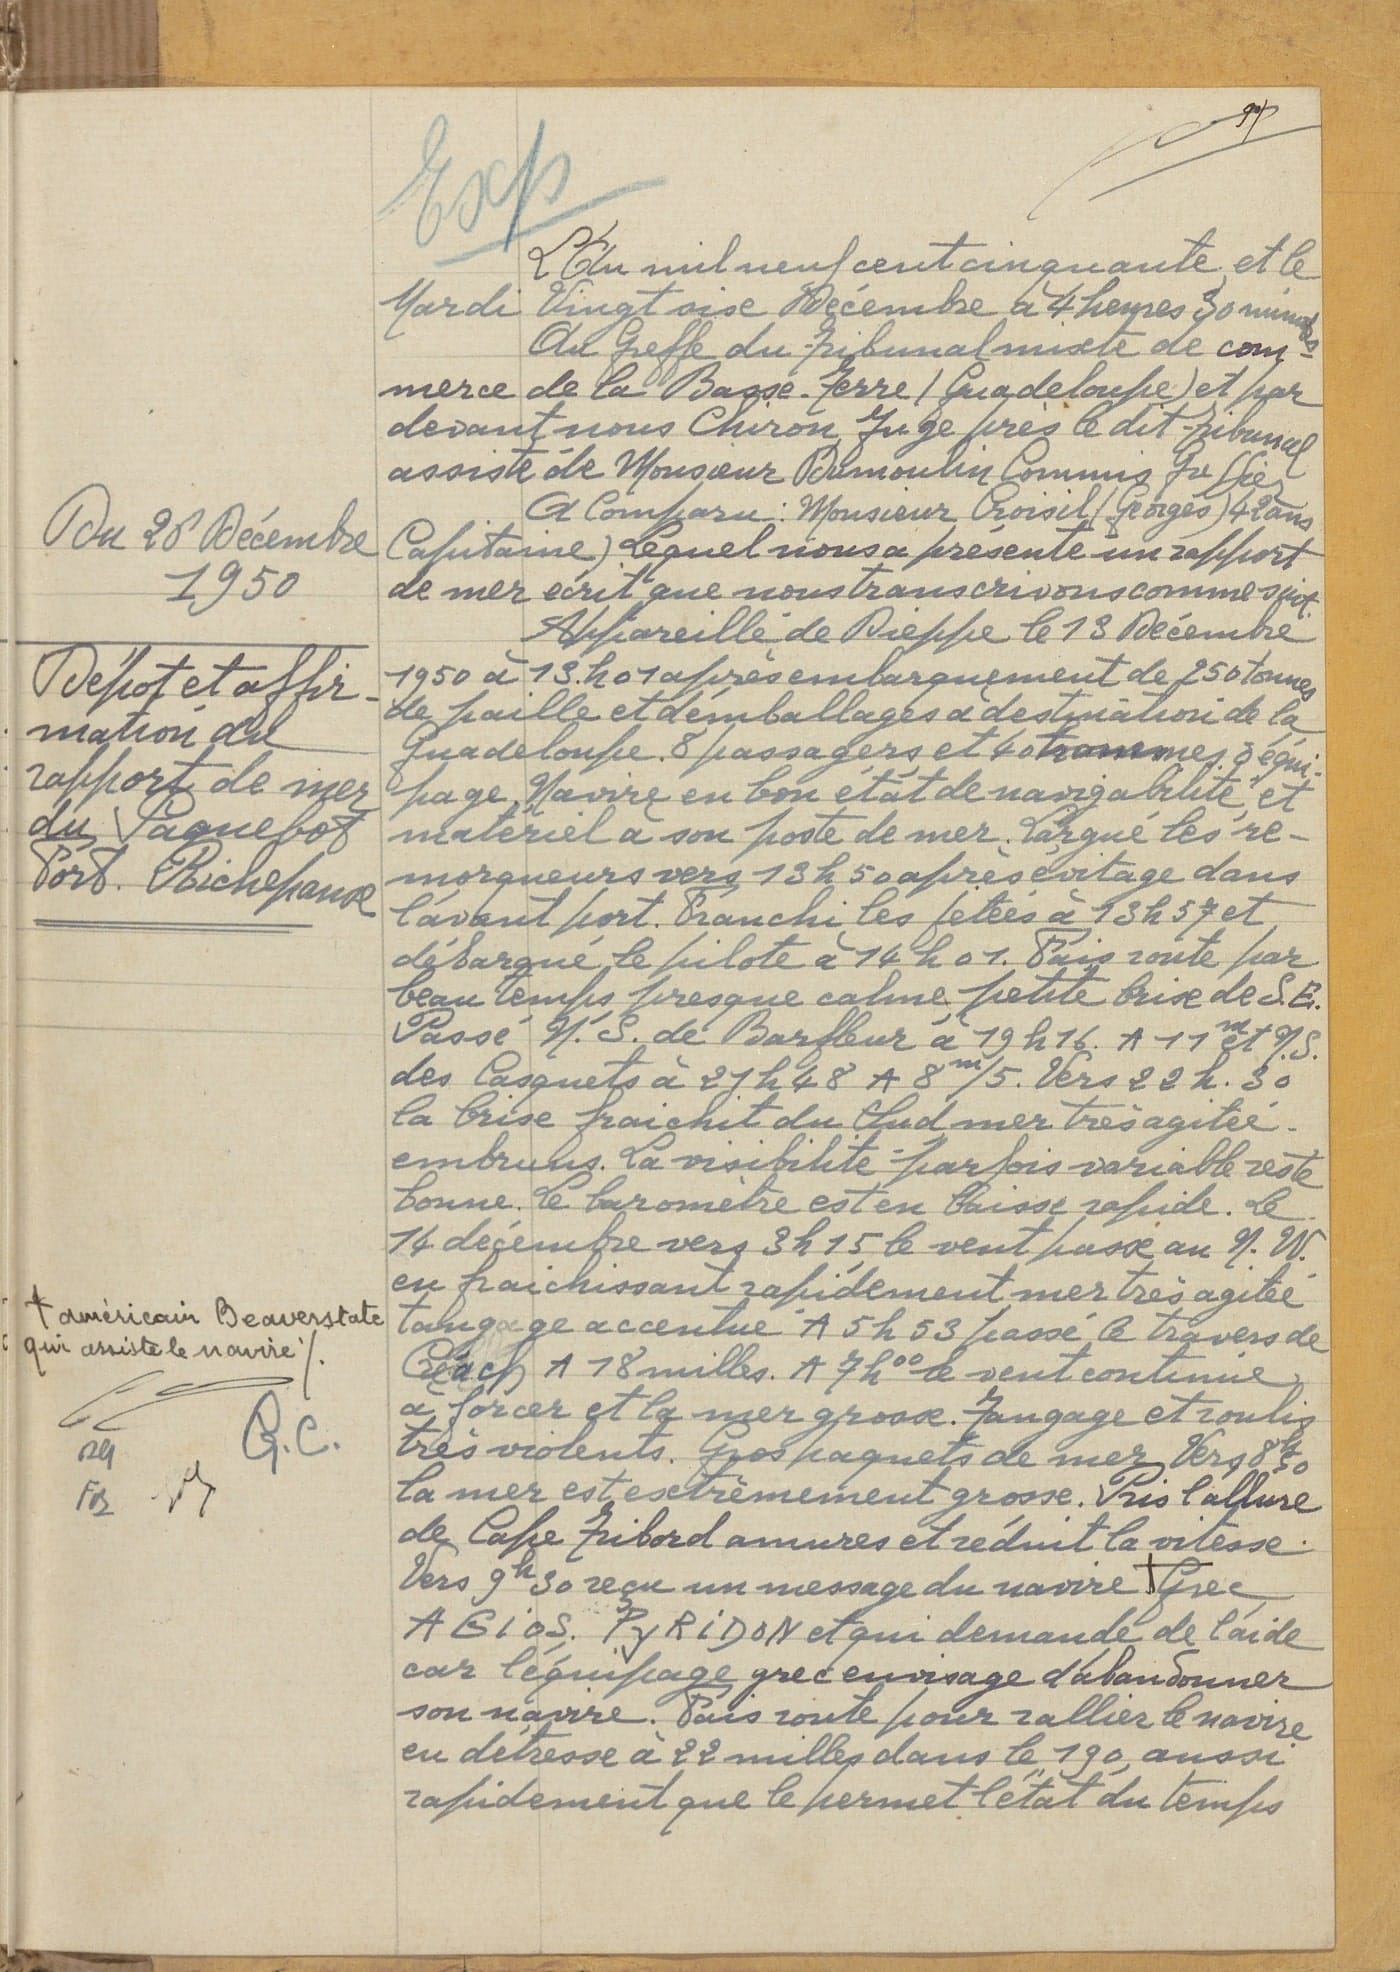 Exp
L'An mil neuf cent cinquante et le
Mardi Vingt sixe Décembre à 4 heures 30 minutes
Au Greffe du Tribunal mixte de com-
merce de la Basse-Terre (Guadeloupe) et par
devant nous Chiron, Juge près le dit Tribunal
assisté de Monsieur Dumoulin Commis Greffier
A Comparu : Monsieur Croisil (Georges) 42 ans
Capitaine) Lequel nous a présenté un rapport
de mer écrit que nous transcrivons comme suit.
Appareillé de Dieppe le 13 Décembre
1950 à 13.h 01 après embarquement de 250 tonnes
de paille et d'emballages à destination de la
Guadeloupe. 8 passagers et 40 hommes d'équi-
page. Navire en bon état de navigabilité et
matériel à son poste de mer. Largué les re-
morqueurs vers 13 h 50 après évitage dans
l'avant port. Franchi les jetées à 13 h 57 et
débarqué le pilote à 14 h 01. Fais route par
beau temps presque calme, petite brise de S.E.
Passé N.S. de Barfleur à 19 h 16. A 11 m et N.S.
des Casquets à 21 h 48 A 8 m/5. Vers 22 h. 30
la brise fraichit du Sud mer très agitée -
embruns. La visibilité parfois variable reste
bonne. Le baromètre est en baisse rapide. Le
14 décembre vers 3 h 15 le vent passe au N.W.
en fraichissant rapidement mer très agitée
tangage accentué A 5 h 53 passé le travers de
Créach A 18 milles. A 7 h 00 le vent continue
à forcer et la mer grosse. Tangage et roulis
très violents. Gros paquets de mer Vers 8 h 30
la mer est extrèmement grosse. Pris l'allure
de Cape Tribord amures et réduit la vitesse.
Vers 9 h 30 reçu un message du navire † Grec
AGIOS. PYRIDON et qui demande de l'aide
car l'équipage grec envisage d'abandonner
son navire. Fais route pour rallier le navire
en détresse à 22 milles dans le 190, aussi
rapidement que le permet l'état du temps
Du 26 Décembre
1950
Dépôt et affir-
mation du
rapport de mer
du Paquebot
Fort. Richepanse
† américain Beaverstate
qui assiste le navire /.
G.C.